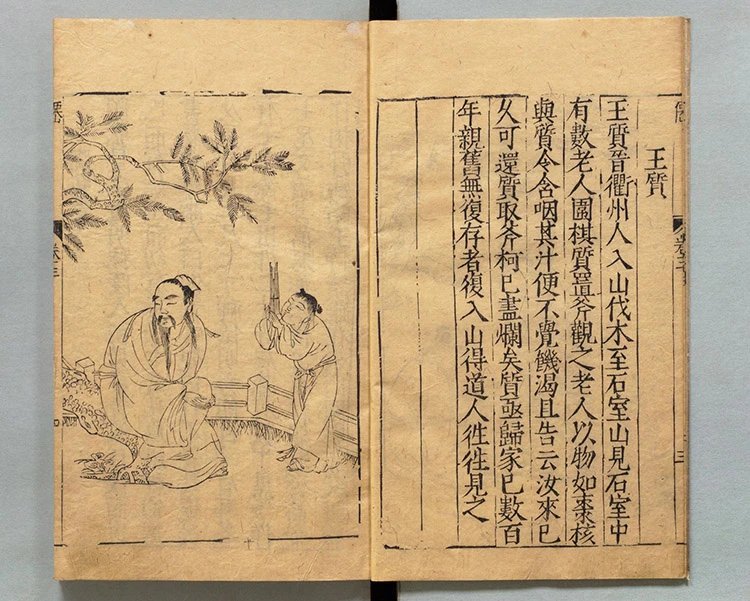 王質
王質晉衢州人入山伐木至石室山見石室中
有數老人圍棋質置斧觀之老人以物如棗核
與質令含咽其汁便不覺饑渴且告云汝來已
久可還質取斧柯已盡爛矣質亟歸家已數百
年親舊無復存者復入山得道人徃徃見之
卷三